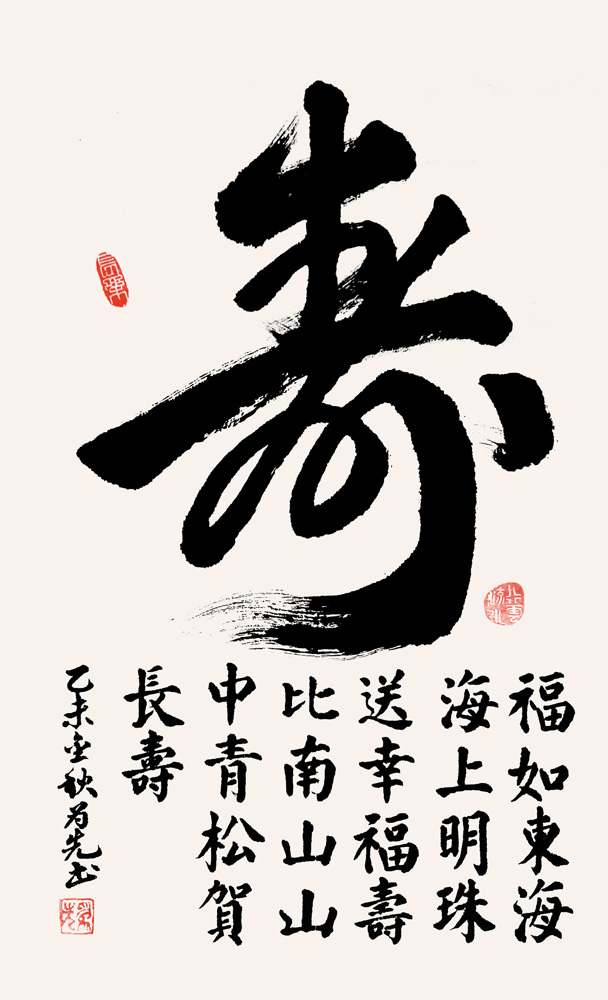 寿
福如東海
海上明珠
送幸福壽
比南山山
中青松賀
長壽
乙未金秋为先书